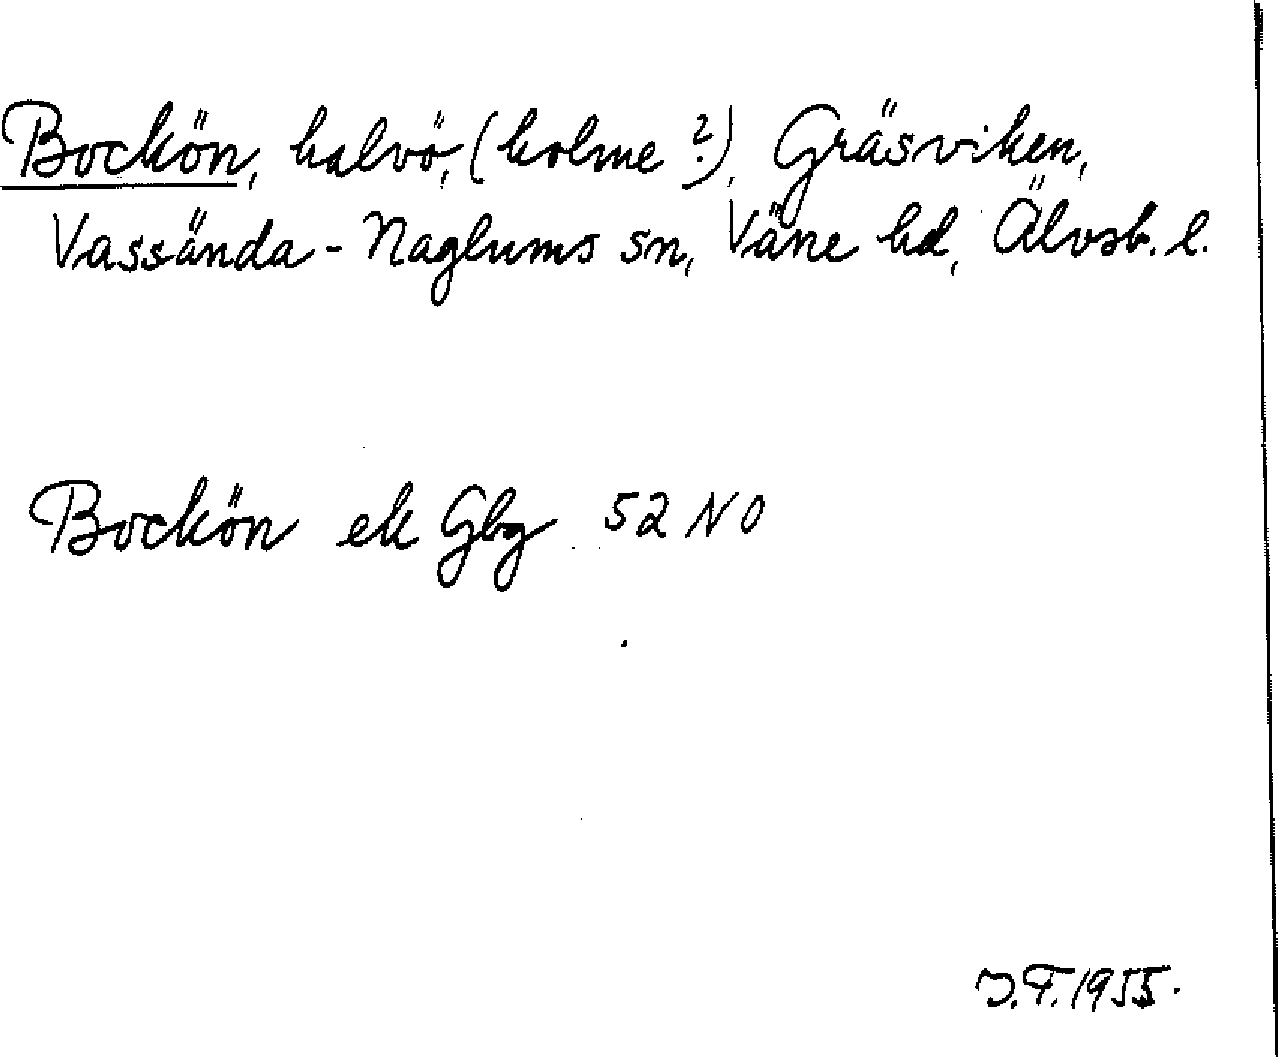 Bockön, halvö, (holme?), Gräsviken,
Vassända-Naglums sn, Väne hd, Älvsb. l.
Bockön ek Gbg 52 NO
J.F. 1955.